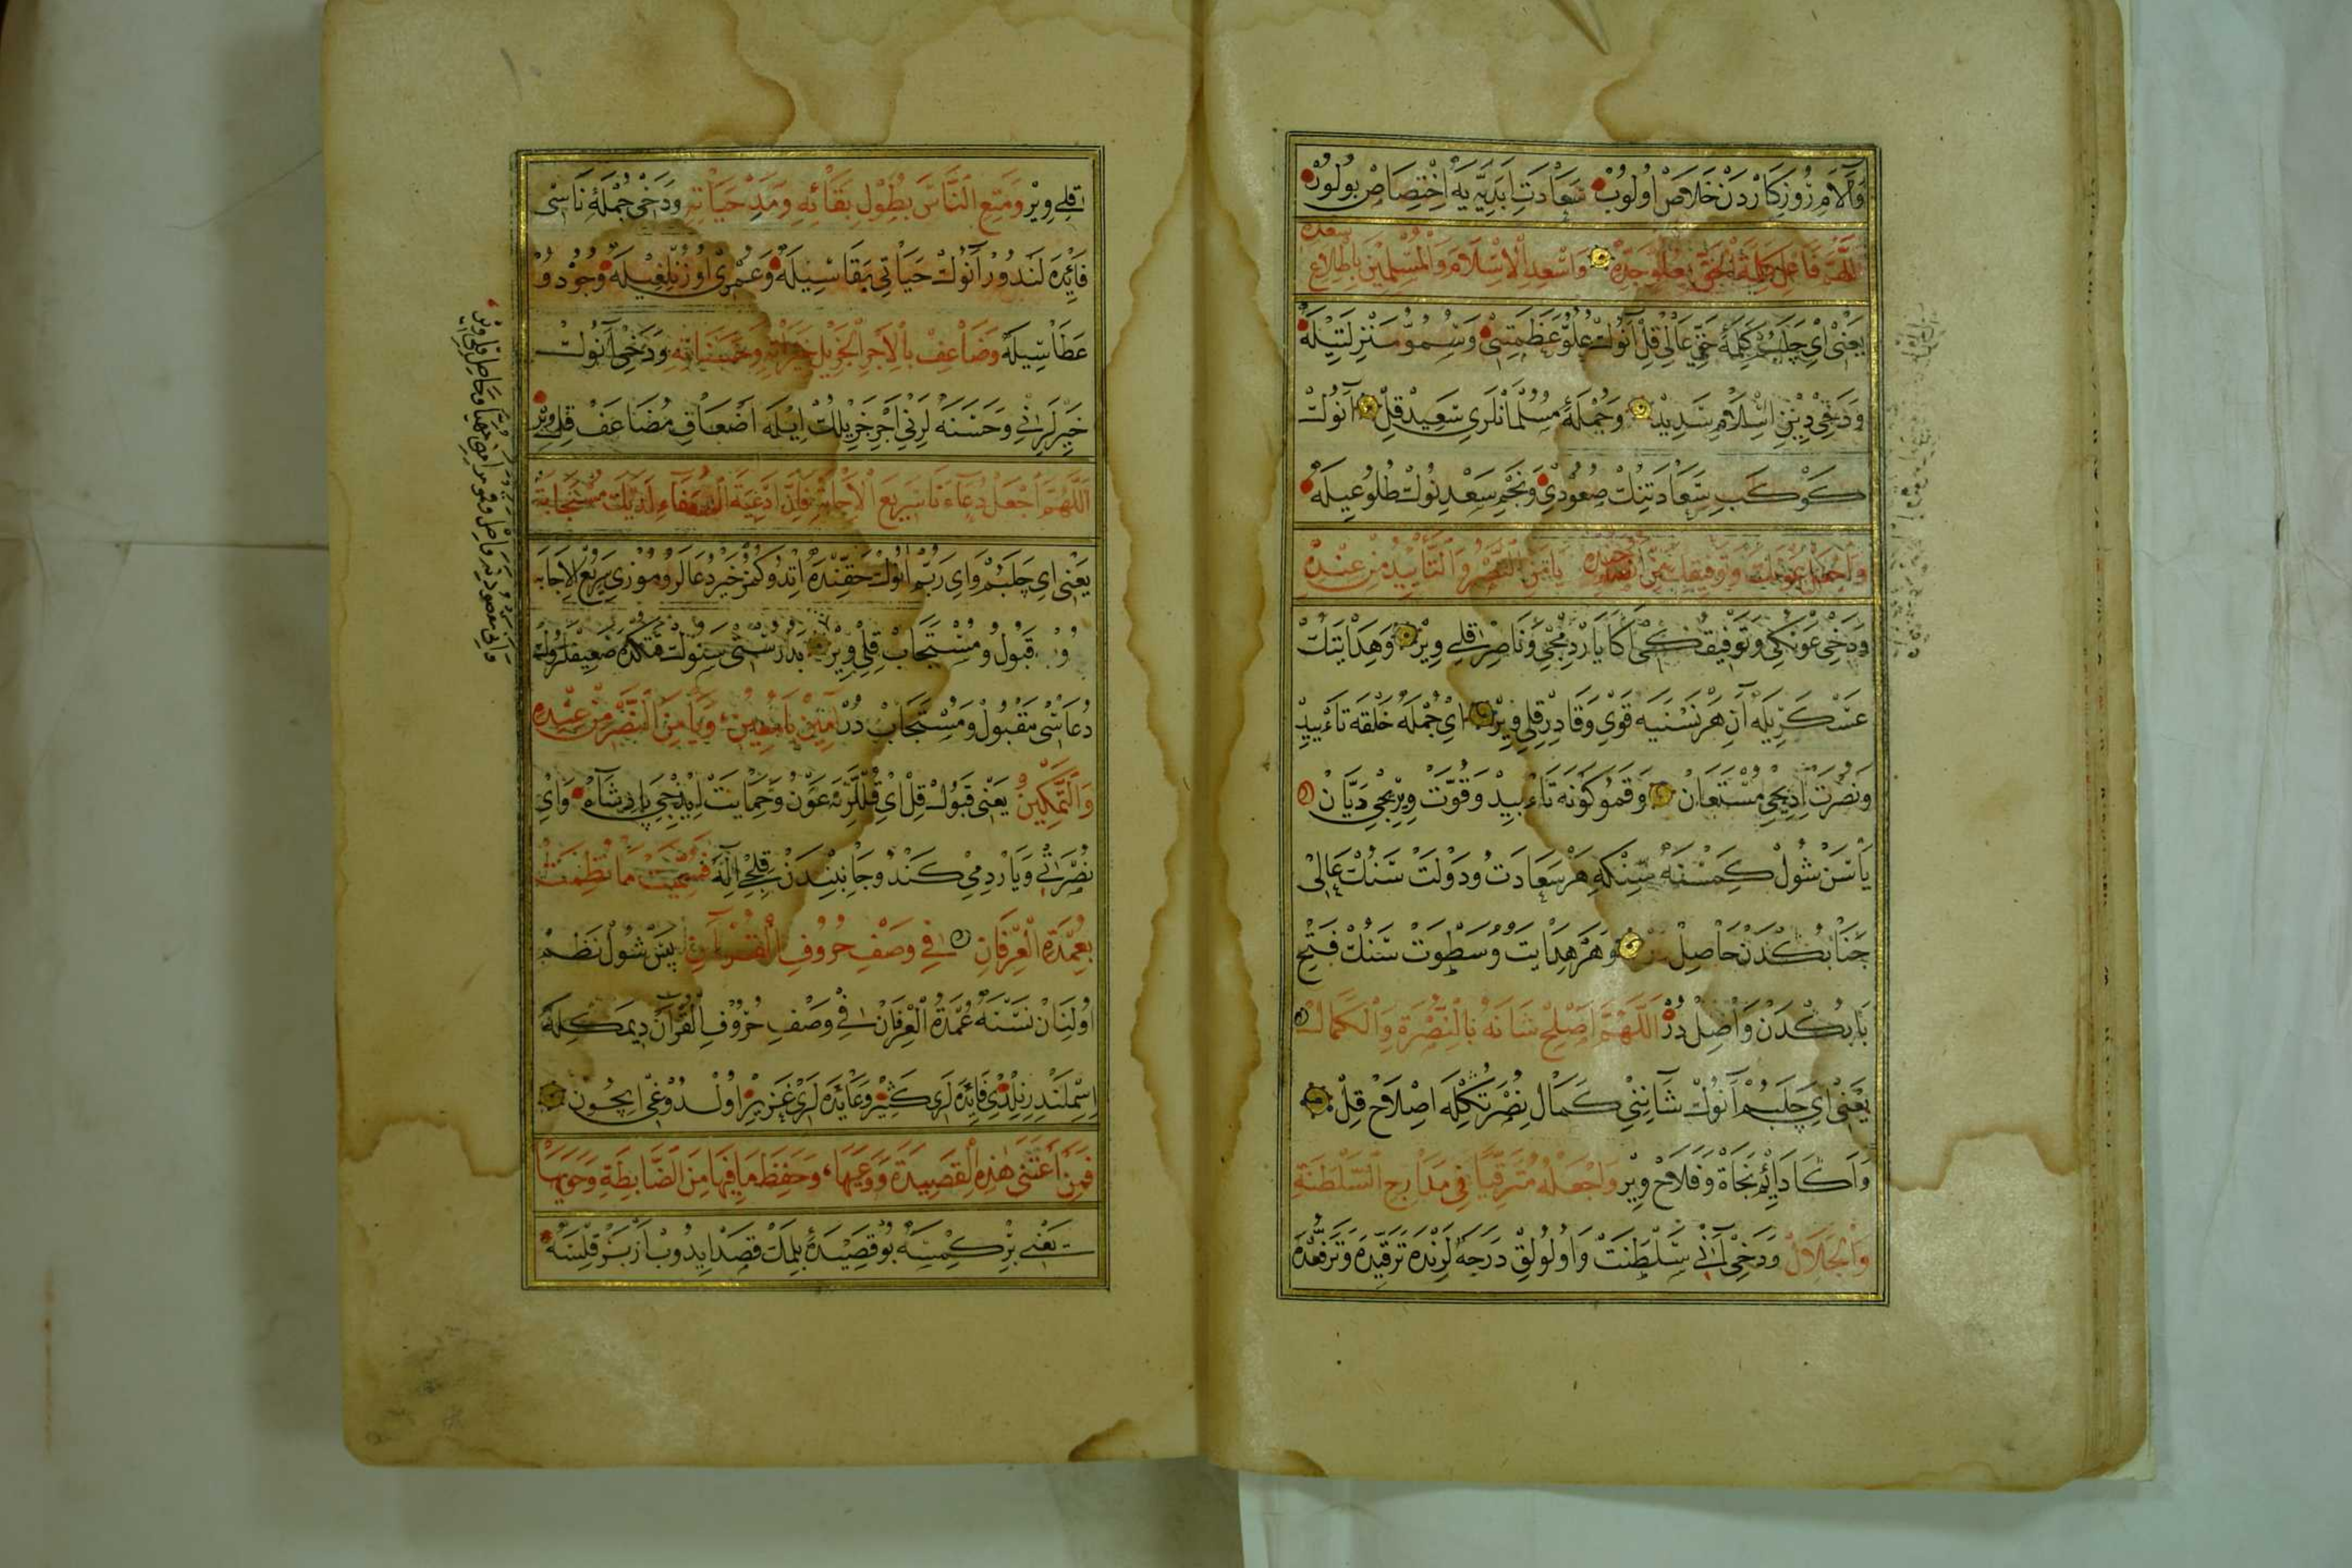 وَآلَامِ رُوزْكَارْدَنْ خَلَاصْ اُولُوبْ سَعَادَتِ اَبَدِيَّه يَه اِخْتِصَاصْ بُولُورْ
اَللّٰهُمَّ فَاَعْلِ كَلِمَةَ الْحَقِّ بِعُلُوِّ جَدِّهِ وَاَسْعِدِ الْاِسْلَامَ وَالْمُسْلِمِينَ بِاِطْلَاعِ سَعْدِهِ
يَعْنِي اَيْ چَلَبُمْ كَلِمَهٔ حَقِّي عَالِي قِلْ آنُوكْ عُلُوِّ عَظَمَتِي وَسُمُوِّ مَنْزِلَتِيلَهْ
وَدَخِي دِينِ اِسْلَامِ سَدِيدْ وَجُمْلَهٔ مُسُلْمَانْلَرِي سَعِيدْ قِلْ آنُوكْ
كَوْكَبِ سَعَادَتِنُكْ صُعُودِي وَنَجْمِ سَعْدِنُوكْ طُلُوعِيلَهْ
يَا مَنِ النَّصْرُ وَالتَّأْيِيدُ مِنْ عِنْدِهِ
وَدَخِي عَوْنِكِي وَتَوْفِيقُكِي اَكَا يَارْدِمْجِي وَنَاصِرْ قِلِي وِيرْ وَهِدَايَتُكْ
عَسْكَرِيلَه آنِ هَرْ نَسْنَيَه قَوِي وَقَادِرْ قِلِي وِيرْ اَيْ جُمْلَه خَلْقَه تَاءْيِيدْ
وَنُصْرَتْ اِدِيجِي مُسْتَعَانْ وَقَمُو كَوْنَه تَاءْيِيدْ وَقُوَّتْ وِيرِيجِي دَيَّانْ
يَا سَنْ شُولْ كِمْسْنَه سِنْكِه هَرْ سَعَادَتْ وَدَوْلَتْ سَنُكْ عَالِي
جَنَابُكْدَنْ حَاصِلْ دُرْ وَهَرْ هِدَايَتْ وَسَطْوَتْ سَنُكْ فَتْحِ
بَابُكْدَنْ وَاصِلْ دُرْ اَللّٰهُمَّ اَصْلِحْ شَانَهُ بِالنُّصْرَةِ وَالْكَمَالْ
يَعْنِي اَيْ چَلَبُمْ آنُوكْ شَانِنِي كَمَالِ نُصْرَتُكِلَه اِصْلَاحْ قِلْ
وَآكَا دَائِمْ نَجَاةْ وَفَلَاحْ وِيرْ وَاجْعَلْهُ مُتَرَقِّيًا فِي مَدَارِجِ السَّلْطَنَةِ
وَالْجَلَالْ وَدَخِي آنِي سَلْطَنَتْ وَاُولُولِقْ دَرَجَه لَرِنْدَه تَرَقِّيدَه وَتَرَفُّعْدَه
قِلِي وِيرْ وَمَتِّعِ النَّاسَ بِطُولِ بَقَائِهِ وَمَدِّ حَيَاتِهِ وَدَخِي جُمْلَهٔ نَاسِي
فَائِدَه لَنْدُورْ آنُوكْ حَيَاتِي بَقَاسِيلَهْ وَعُمْرِي اُوزُنْلِغِيلَهْ وَجُودُ وُ
عَطَاسِيلَهْ وَضَاعِفْ بِالْاَجْرِ الْجَزِيلِ خَيْرَاتِهِ وَحَسَنَاتِهِ وَدَخِي آنُوكْ
خَيْرْلَرِنِي وَحَسَنَه لَرِنِي اَجْرِ جَزِيلُكْ اِيلَه اَضْعَافِ مُضَاعَفْ قِلِي وِيرْ
اَللّٰهُمَّ اجْعَلْ دُعَاءَنَا سَرِيعَ الْاِجَابَةِ فَاِنَّ اَدْعِيَةَ الضُّعَفَاءِ لَدَيْكَ مُسْتَجَابَةٌ
يَعْنِي اَيْ چَلَبُمْ وَاَيْ رَبُّمْ آنُوكْ حَقِّنْدَه اِتْدُوكُمُزْ خَيْرْ دُعَالَرُومُوزِي سَرِيعُ الْاِجَابَه
وُ قَبُولُ وُ مُسْتَجَابْ قِلِي وِيرْ بَدُرُسْتِي سَنُوكْ قَتُكْدَه ضَعِيفْلَرُوكْ
دُعَاسِي مَقْبُولْ وَمُسْتَجَابْ دُرْ آمِينْ يَا مُعِينْ وَيَا مَنِ النَّصْرُ مِنْ عِنْدِهِ
وَالتَّمْكِينْ يَعْنِي قَبُولْ قِلْ اَيْ قُلْلَرِنَه عَوْنْ وَحِمَايَتْ اِيدِيجِي پَادِشَاهْ وَاَيْ
نُصْرَتِي وَيَارْدِمِي كَنْدُو جَانِبِنْدَنْ قِلِيجِي اِلٰهْ فَسُمِّيَتْ مَا نُظِمَتْ
بِعُمْدَةِ الْعِرْفَانِ فِي وَصْفِ حُرُوفِ الْقُرْآنِ پَسْ شُولْ نَظْمْ
اُولِنَانْ نَسْنَه عُمْدَةُ الْعِرْفَانْ فِي وَصْفِ حُرُوفِ الْقُرْآنْ دِيمَكِلَهْ
اِسِمْلَنْدِرِيلْدِي فَائِدَه لَرِي كَثِيرْ وَعَائِدَه لَرِي عَزِيزْ اُولْدُوغِي اِيچُونْ
فَمَنِ اعْتَنَى هٰذِهِ الْقَصِيدَةَ وَوَعَيهَا وَحَفِظَ مَا فِيهَا مِنَ الضَّابِطَةِ وَحَوَيهَا
يَعْنِي بِرْ كِمْسَه بُو قَصِيدَهٔ بِلْمَكْ قَصْدْ اِيدُوبْ اَزْبَرْ قِلِسَهْ